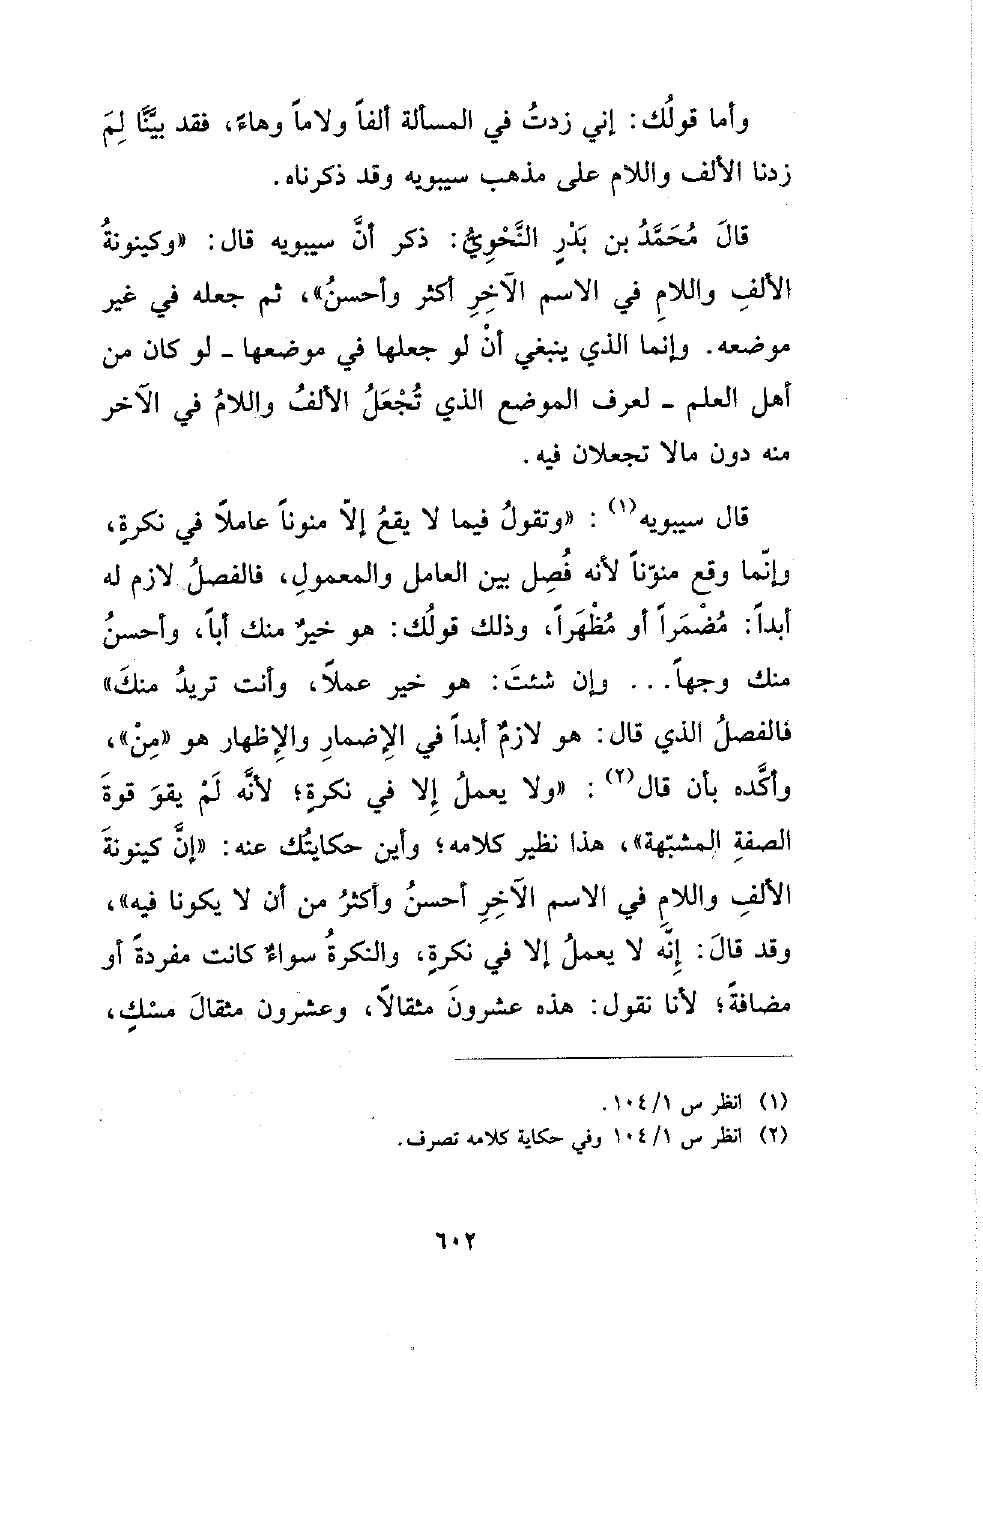 وأما قولُك: إني زدتُ في المسألة ألفاً ولاماً وهاءً، فقد بيَّنَّا لِمَ
زدنا الألف واللام على مذهب سيبويه وقد ذكرناه.
قالَ مُحَمَّدُ بن بَدْرٍ النَّحْوِيُّ: ذكر أنَّ سيبويه قال: «وكينونةُ
الألفِ واللامِ في الاسم الآخِرِ أكثر وأحسنُ»، ثم جعله في غير
موضعه. وإنما الذي ينبغي أنْ لو جعلها في موضعها ـ لو كان من
أهل العلم ـ لعرف الموضع الذي تُجْعَلُ الألفُ واللامُ في الآخر
منه دون مالا تجعلان فيه.
قال سيبويه(١): «وتقولُ فيما لا يقعُ إلاّ منوناً عاملاً في نكرةٍ،
وإنّما وقع منوّناً لأنه فُصِل بين العامل والمعمولِ، فالفصلُ لازم له
أبداً: مُضْمَراً أو مُظْهَراً، وذلك قولُك: هو خيرٌ منك أباً، وأحسنُ
منك وجهاً... وإن شئتَ: هو خير عملاً، وأنت تريدُ منكَ»
فالفصلُ الذي قال: هو لازمٌ أبداً في الإِضمارِ والإِظهار هو «مِنْ»،
وأكَّده بأن قال(٢): «ولا يعملُ إِلا في نكرةٍ؛ لأنَّه لَمْ يقوَ قوةَ
الصفةِ المشبّهة»، هذا نظير كلامه؛ وأين حكايتُك عنه: «إنَّ كينونةَ
الألفِ واللامِ في الاسم الآخِرِ أحسنُ وأكثرُ من أن لا يكونا فيه»،
وقد قالَ: إِنَّه لا يعملُ إلا في نكرةٍ، والنكرةُ سواءٌ كانت مفردةً أو
مضافةً؛ لأنا نقول: هذه عشرونَ مثقالاً، وعشرون مثقالَ مسْكٍ،
(١) انظر س ١٠٤/١.
(٢) انظر س ١٠٤/١ وفي حكاية كلامه تصرف.
٦٠٢